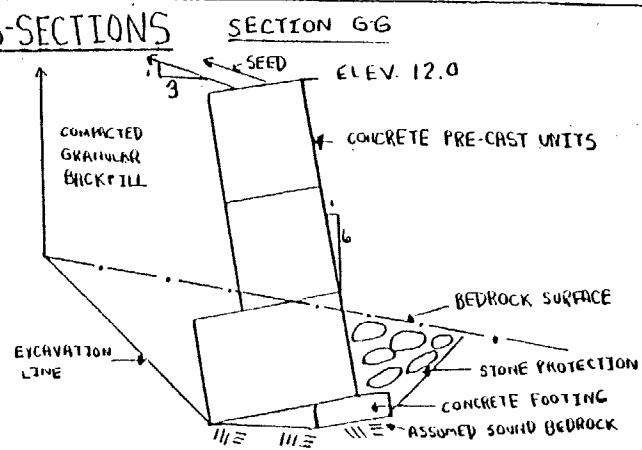 -SECTIONS
SECTION G-G
SEED
1
3
ELEV. 12.0
COMPACTED
GRANULAR
BACKFILL
CONCRETE PRE-CAST UNITS
1
6
BEDROCK SURFACE
EXCAVATION
LINE
STONE PROTECTION
CONCRETE FOOTING
ASSUMED SOUND BEDROCK